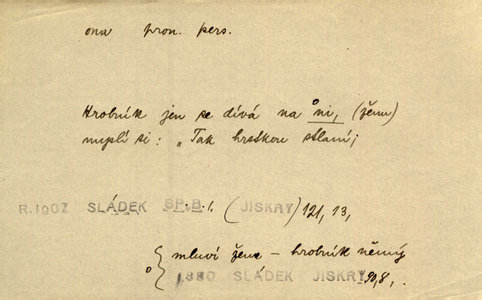 ona pron. pers.
Hrobník jen se dívá na °ni, (ženu)
myslí si: „Tak hrstkou slámi;
R.1907 SLÁDEK SP.B. 1. (JISKRY) 121, 13,
° mluví žena – hrobník němý
1880 SLÁDEK JISKRY 90,8,.